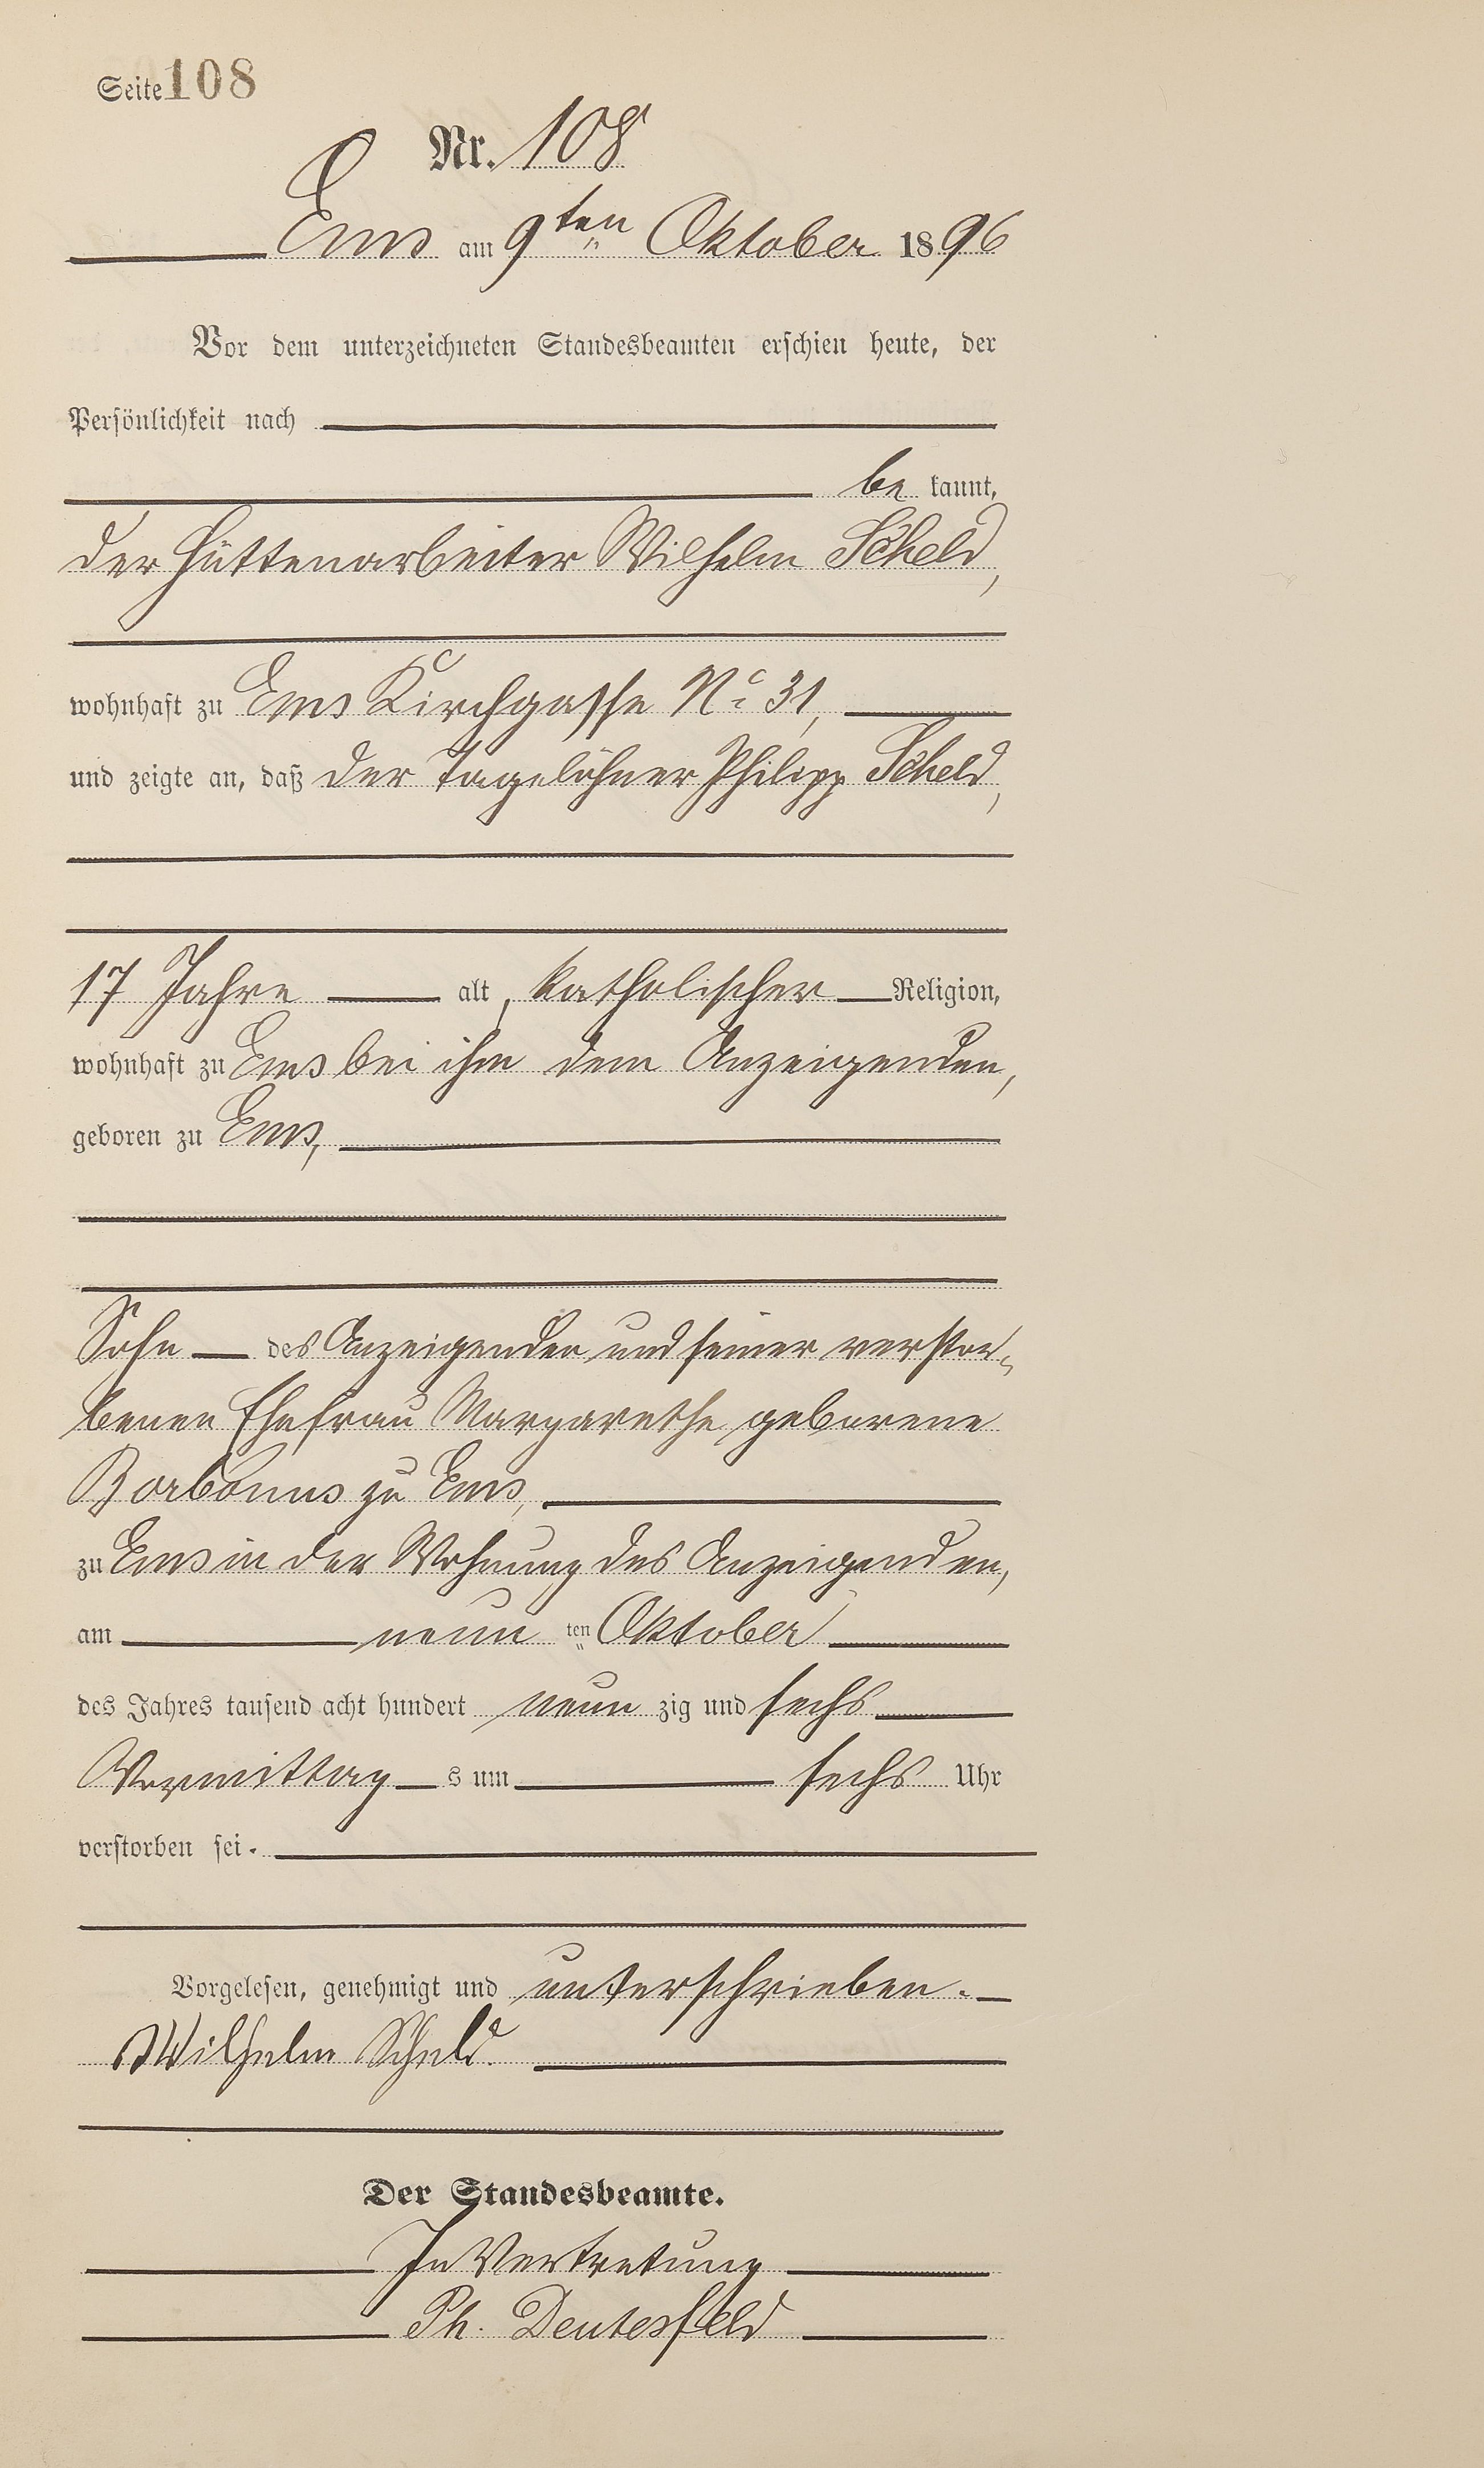 Seite 108
Nr. 108
Ems am 9ten Oktober 1896
Vor dem unterzeichneten Standesbeamten erschien heute, der
Persönlichkeit nach
be kannt,
der Hüttenarbeiter Wilhelm Scheld,
wohnhaft zu Ems Kirchgasse No 31,
und zeigte an, daß der Tagelöhner Philipp Scheld,
17 Jahre alt, katholischer Religion,
wohnhaft zu Ems bei ihm dem Anzeigenden,
geboren zu Ems,
Sohn des Anzeigenden und seiner verstor-
benen Ehefrau Margarethe geborene
Borbonus zu Ems,
zu Ems in der Wohnung des Anzeigenden,
am neun ten Oktober
des Jahres tausend acht hundert neun zig und sechs
Vormittag s um sechs Uhr
verstorben sei.
Vorgelesen, genehmigt und unterschrieben.
Wilhelm Scheld.
Der Standesbeamte.
In Vertretung
Ph. Deutesfeld